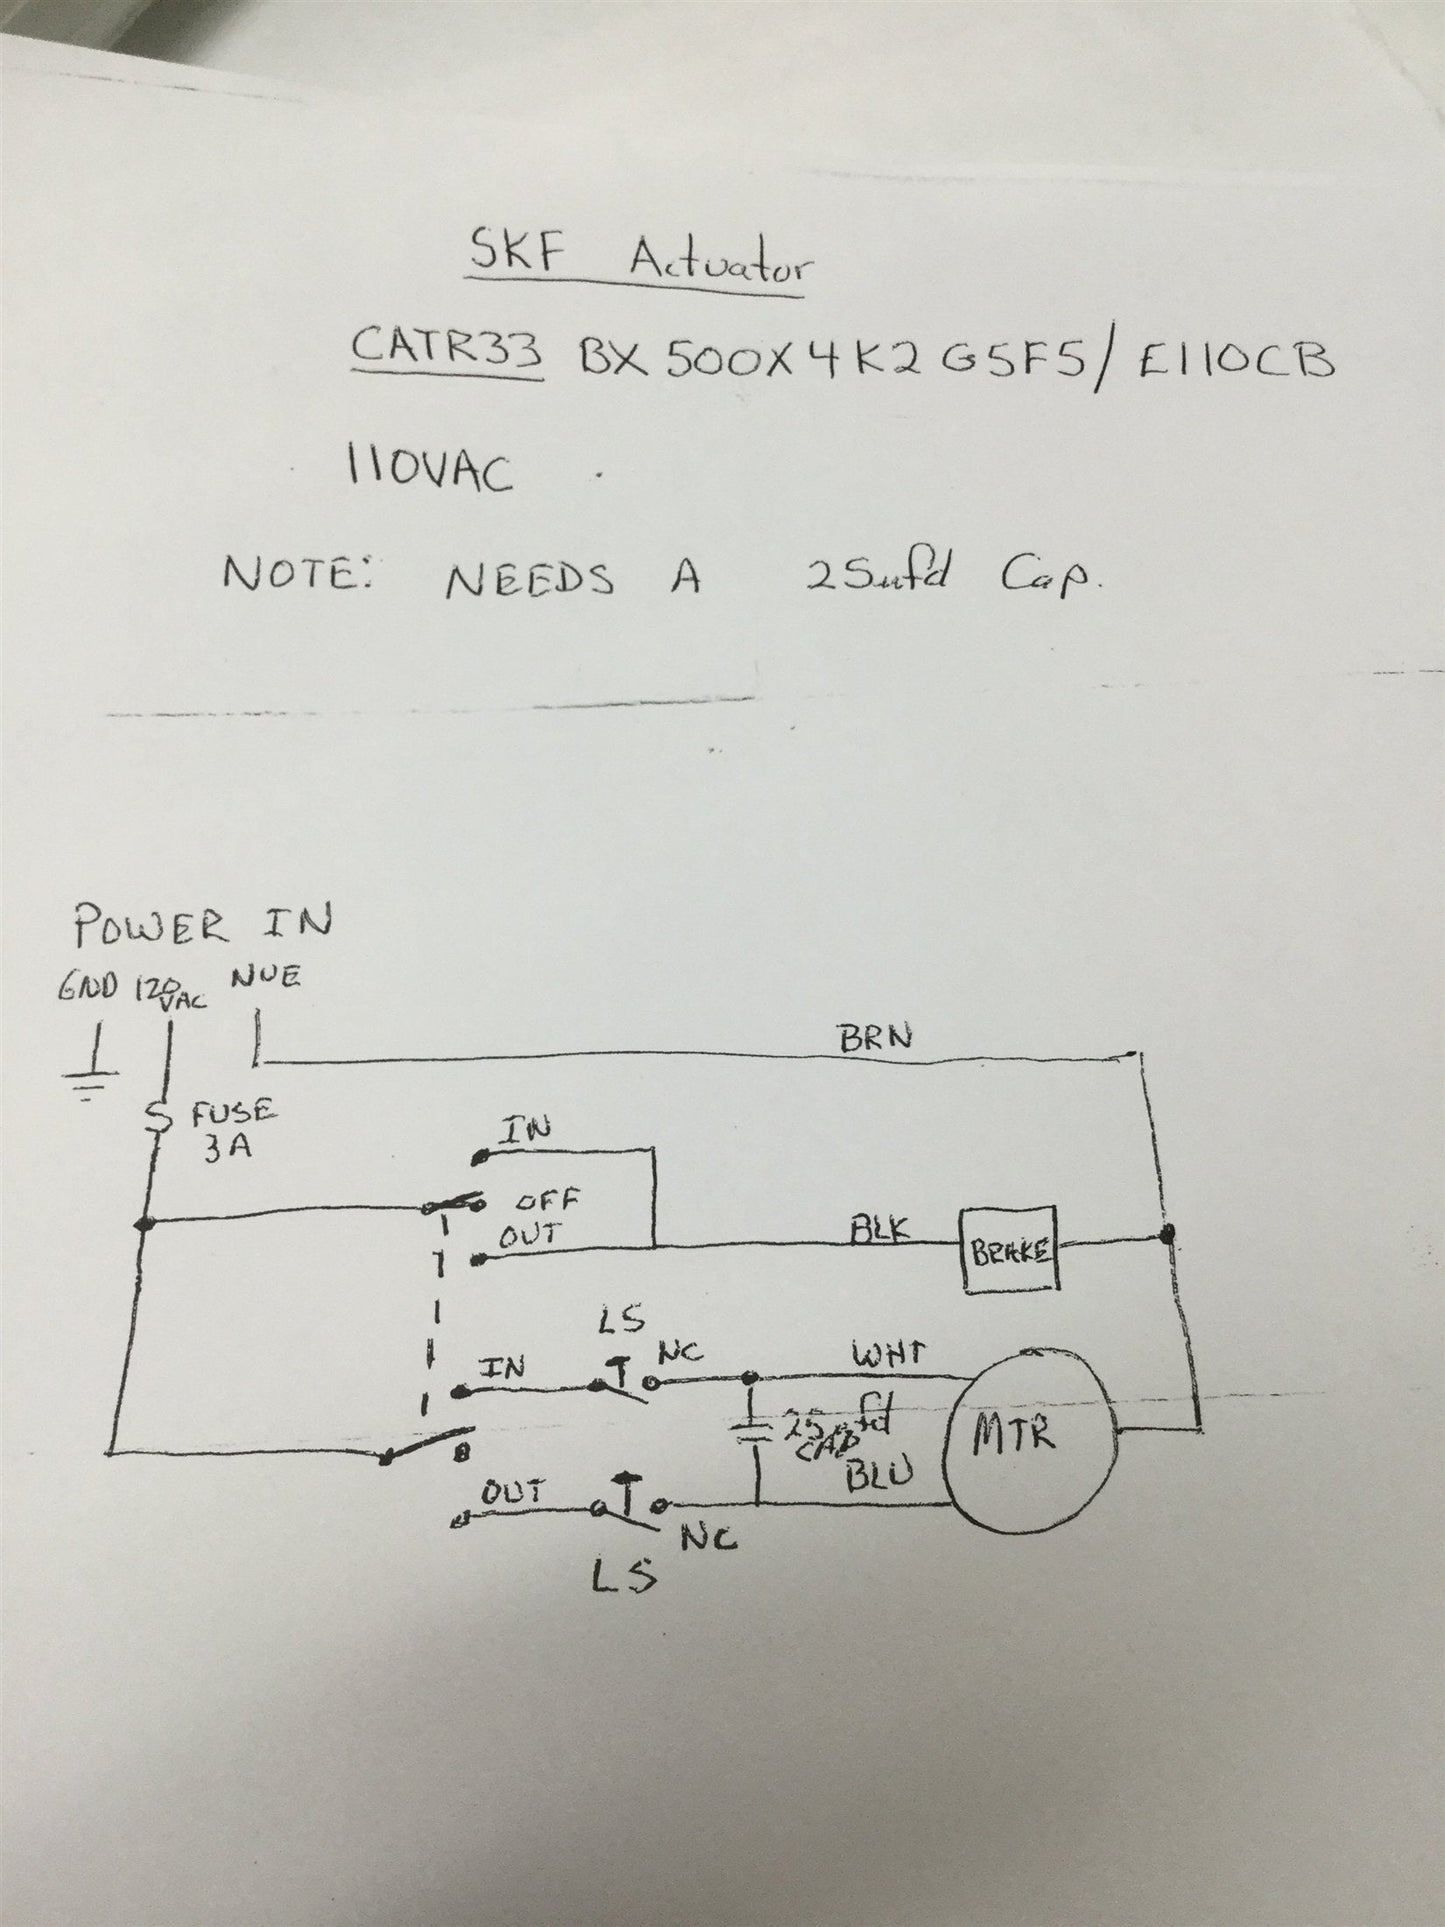 SKF Actuator
CATR33 BX 500X4K2G5F5/E110CB
110VAC
NOTE: NEEDS A 25ufd Cap.
POWER IN
GND 120VAC NUE
BRN
FUSE
3A
IN
OFF
OUT
BLK
BRAKE
LS
NC
WHT
IN
25 ufd
CAP
MTR
BLU
OUT
NC
LS